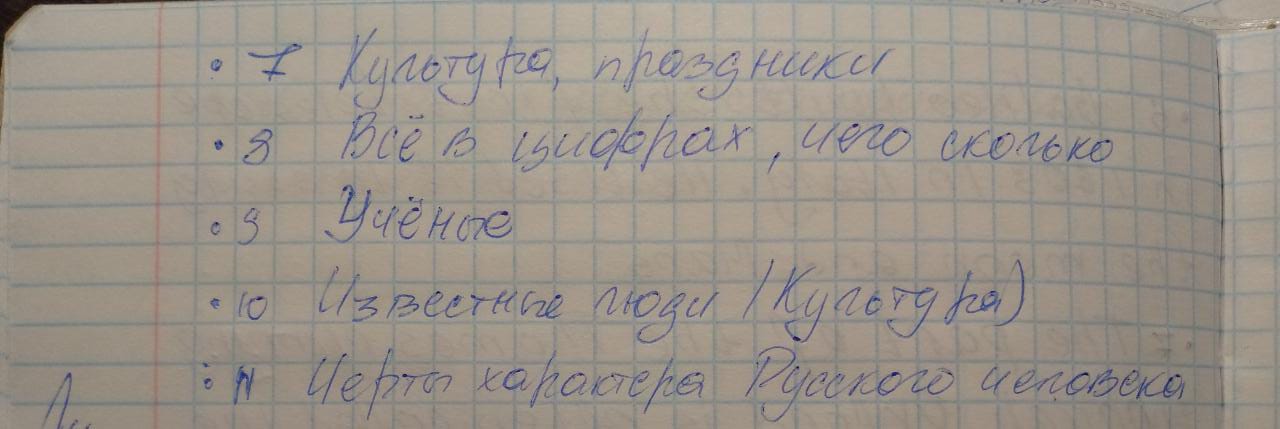 • 7 Культура, праздники
• 8 Всё в цифрах, чего сколько
• 9 Учёные
• 10 Известные люди (Культура)
• 11 Черты характера Русского человека